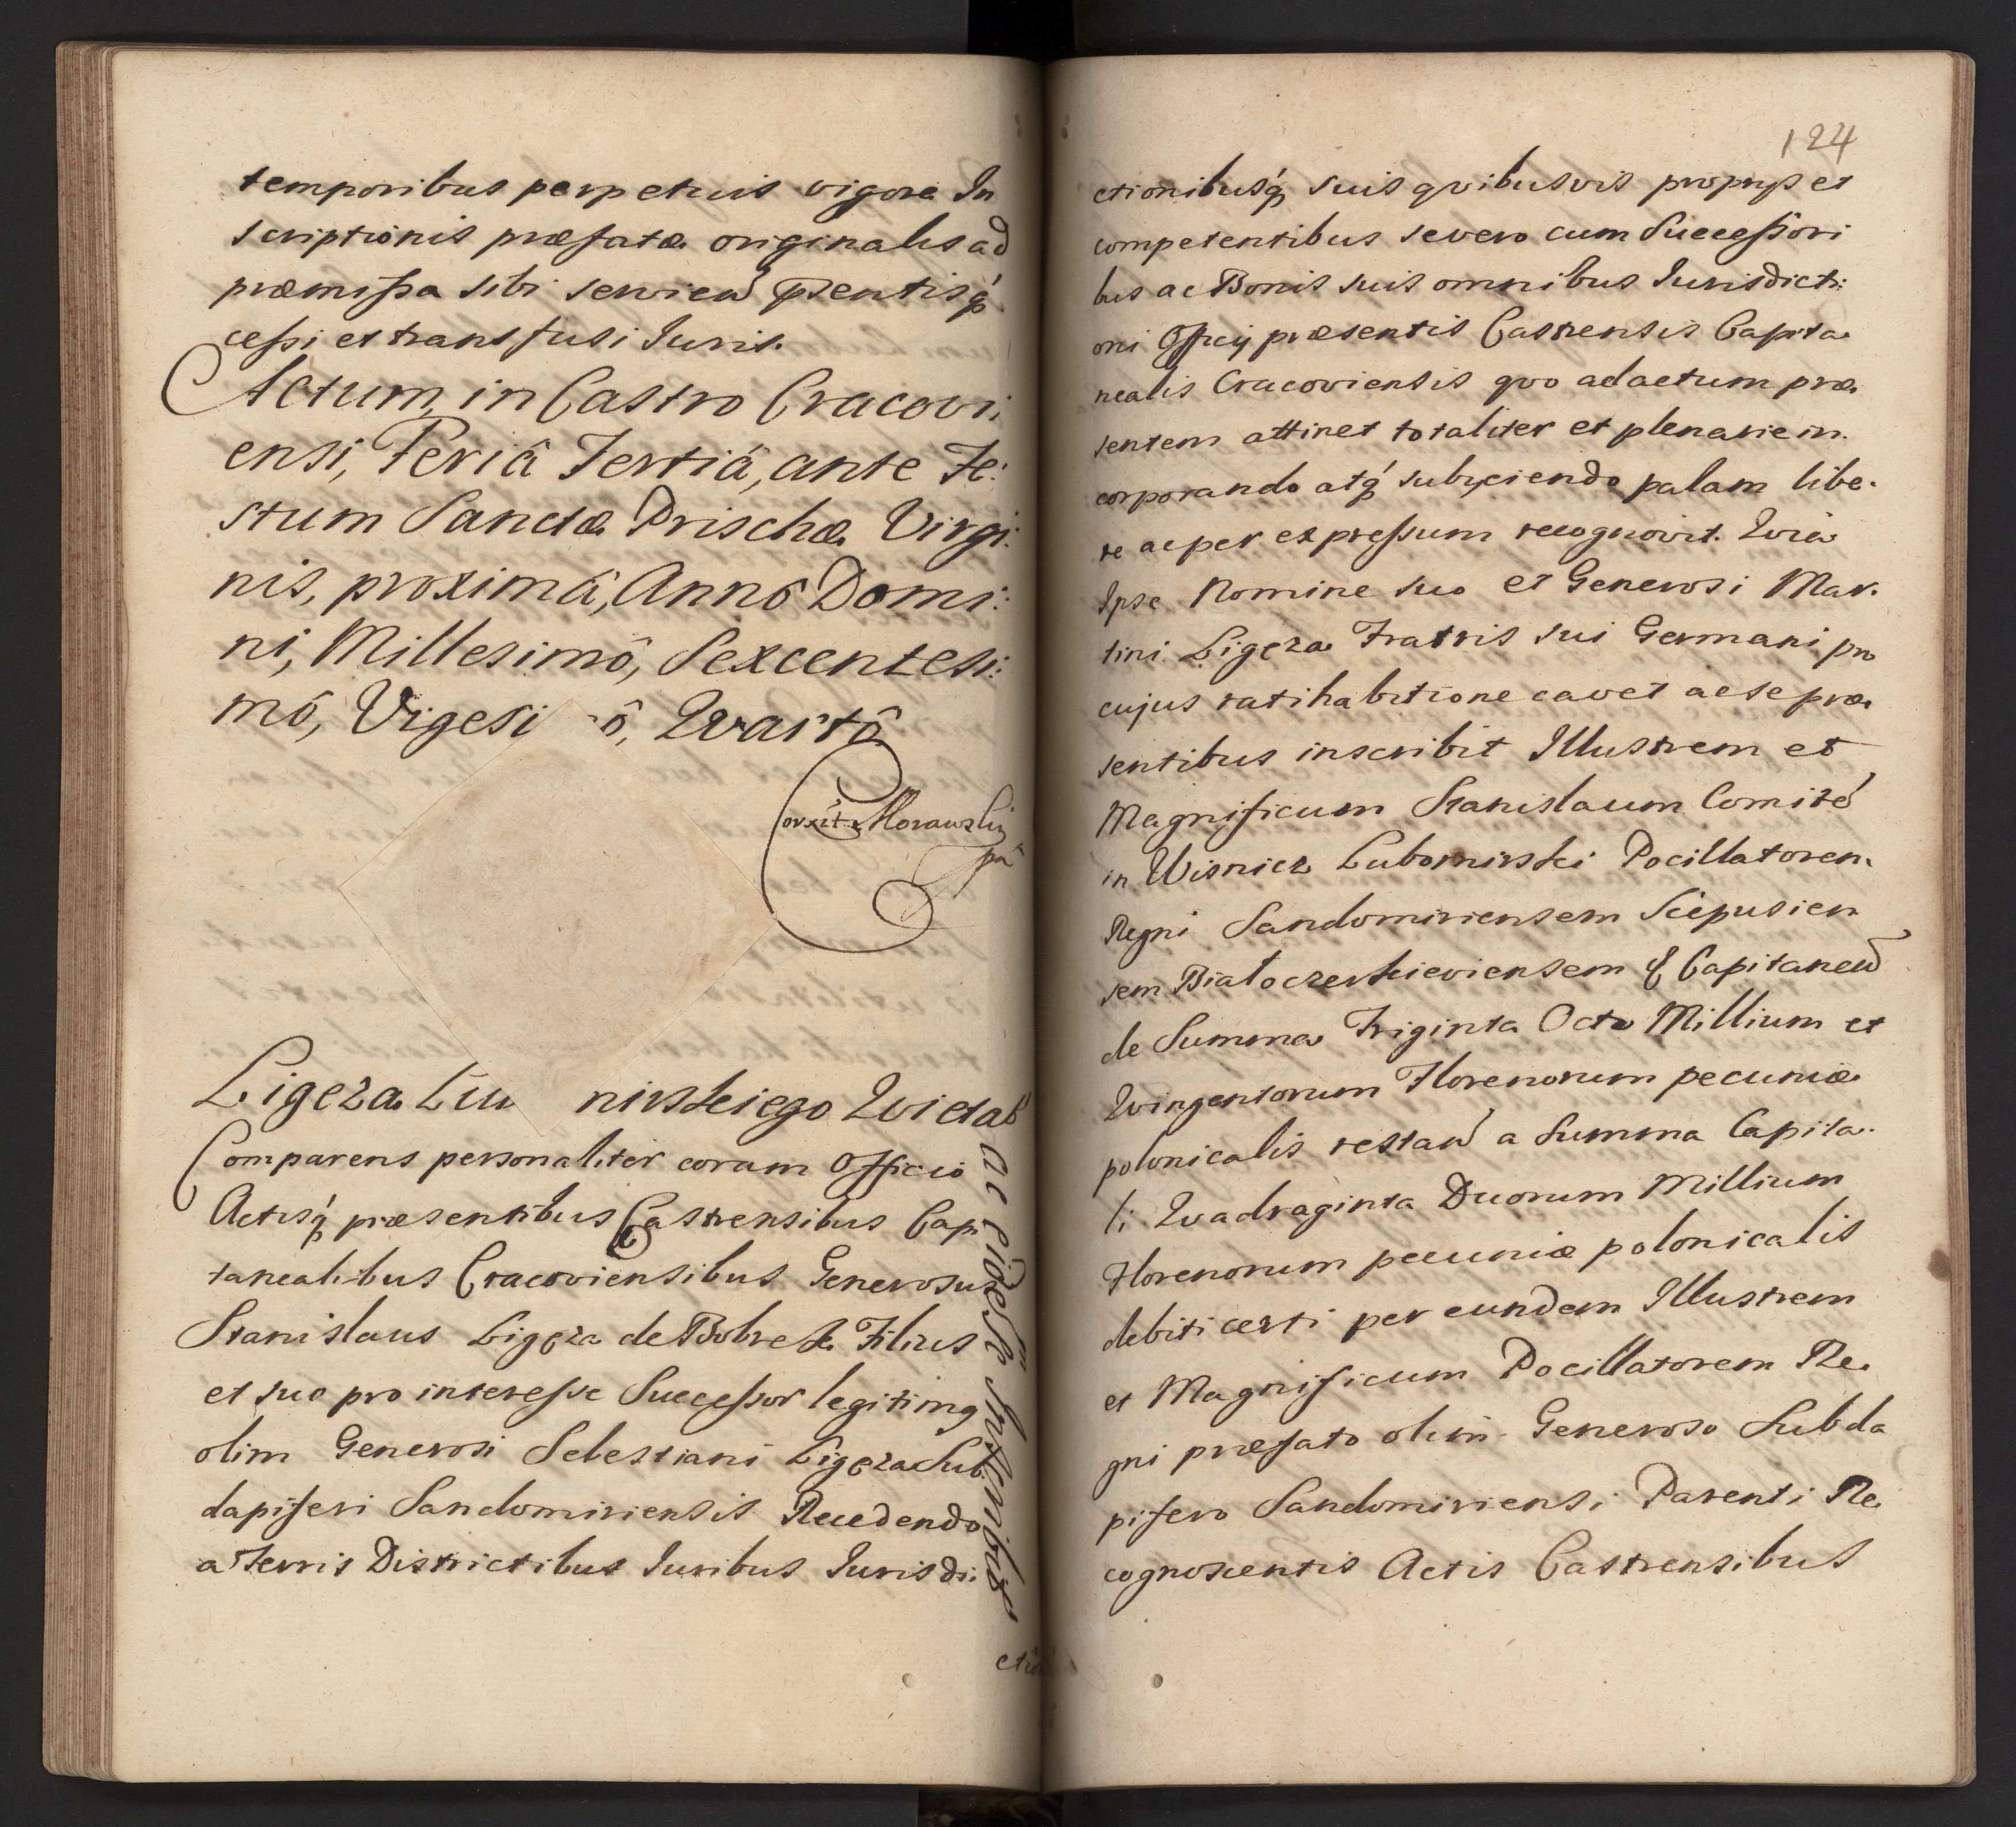 temporibus perpetuis vigore In
scriptionis præfatæ originalis ad
præmissa sibi servien̄ p̄sentisq́
cessi et transfusi Iuris.
Actum, in Castro Cracovi:
ensi, Feriâ Tertiâ, ante Fe:
stum Sanctæ Prischæ Virgi:
nis, proximâ, Annô Domi:
ni, Millesimô, Sexcentesi:
mô, Vigesi ô, Qvartô
Corrxit Morawski
pā
Ligeza Lu nirskiego Qvietat
Comparens personaliter coram Officio
Actisq́ præsentibus Castrensibus Capi
tanealibus Cracoviensibus Generosus
Stanislaus Ligęza de Bobrek Filius
et suo pro interesse Successor legitimꝯ
olim Generosi Sebestiani Ligęza Sub
dapiferi Sandomiriensis Recedendo
a Terris Districtibus Iuribus Iurisdi:
ctio
124
ctionibusq́ suis qvibusvis proprijs et
competentibus se vero cum Successori
bus ac Bonis suis omnibus Iurisdicti:
oni Officij præsentis Castrensis Capita
nealis Cracoviensis qvo ad actum præ
sentem attinet totaliter et plenarie in.
corporando atq́ subijciendo palam libe.
re ac per expressum recognovit. Qvia
Ipse Nomine suo et Generosi Mar.
tini Ligęza Fratris sui Germani pro
cujus ratihabitione cavet ac se præ
sentibus inscribit Illustrem et
Magnificum Stanislaum Comite͂
in Wisnicz Lubomirski Pocillatorem
Regni Sandomiriensem Scepusien
sem Białoczerkieviensem & Capitaneu͂
de Summa Triginta Octo Millium et
Qvingentorum Florenorum pecuniæ
polonicalis restan̄ a Summa Capita.
li Qvadraginta Duorum Millium
Florenorum pecuniæ polonicalis
debiti certi per eundem Illustrem
et Magnificum Pocillatorem Re.
gni præfato olim Generoso Subda
pifero Sandomiriensi Parenti Re
cognoscentis Actis Castrensibus